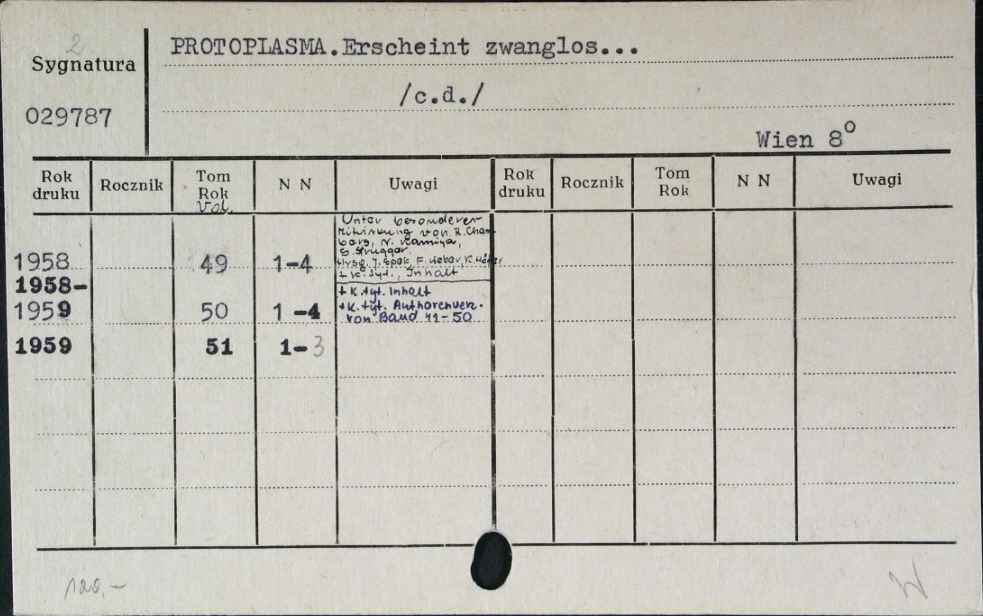 2
PROTOPLASMA.Erscheint zwanglos...
Sygnatura
/c.d./
029787
Wien 8°
Rok druku Rocznik Tom Rok N N Uwagi Rok druku Rocznik Tom Rok N N Uwagi
Vol.
Unter besonderer
Mitwirkung von R. Cham-
bers, N. Kamiya,
S. Strugger
Hrsg. J. Spek, F. Weber, K. Höfler
1958 49 1-4 + K. tyt., Inhalt
1958-
+ K. tyt. Inhalt
1959 50 1-4 + K. tyt. Authorenverz.
von Band 41-50
1959 51 1-3
128,-
W